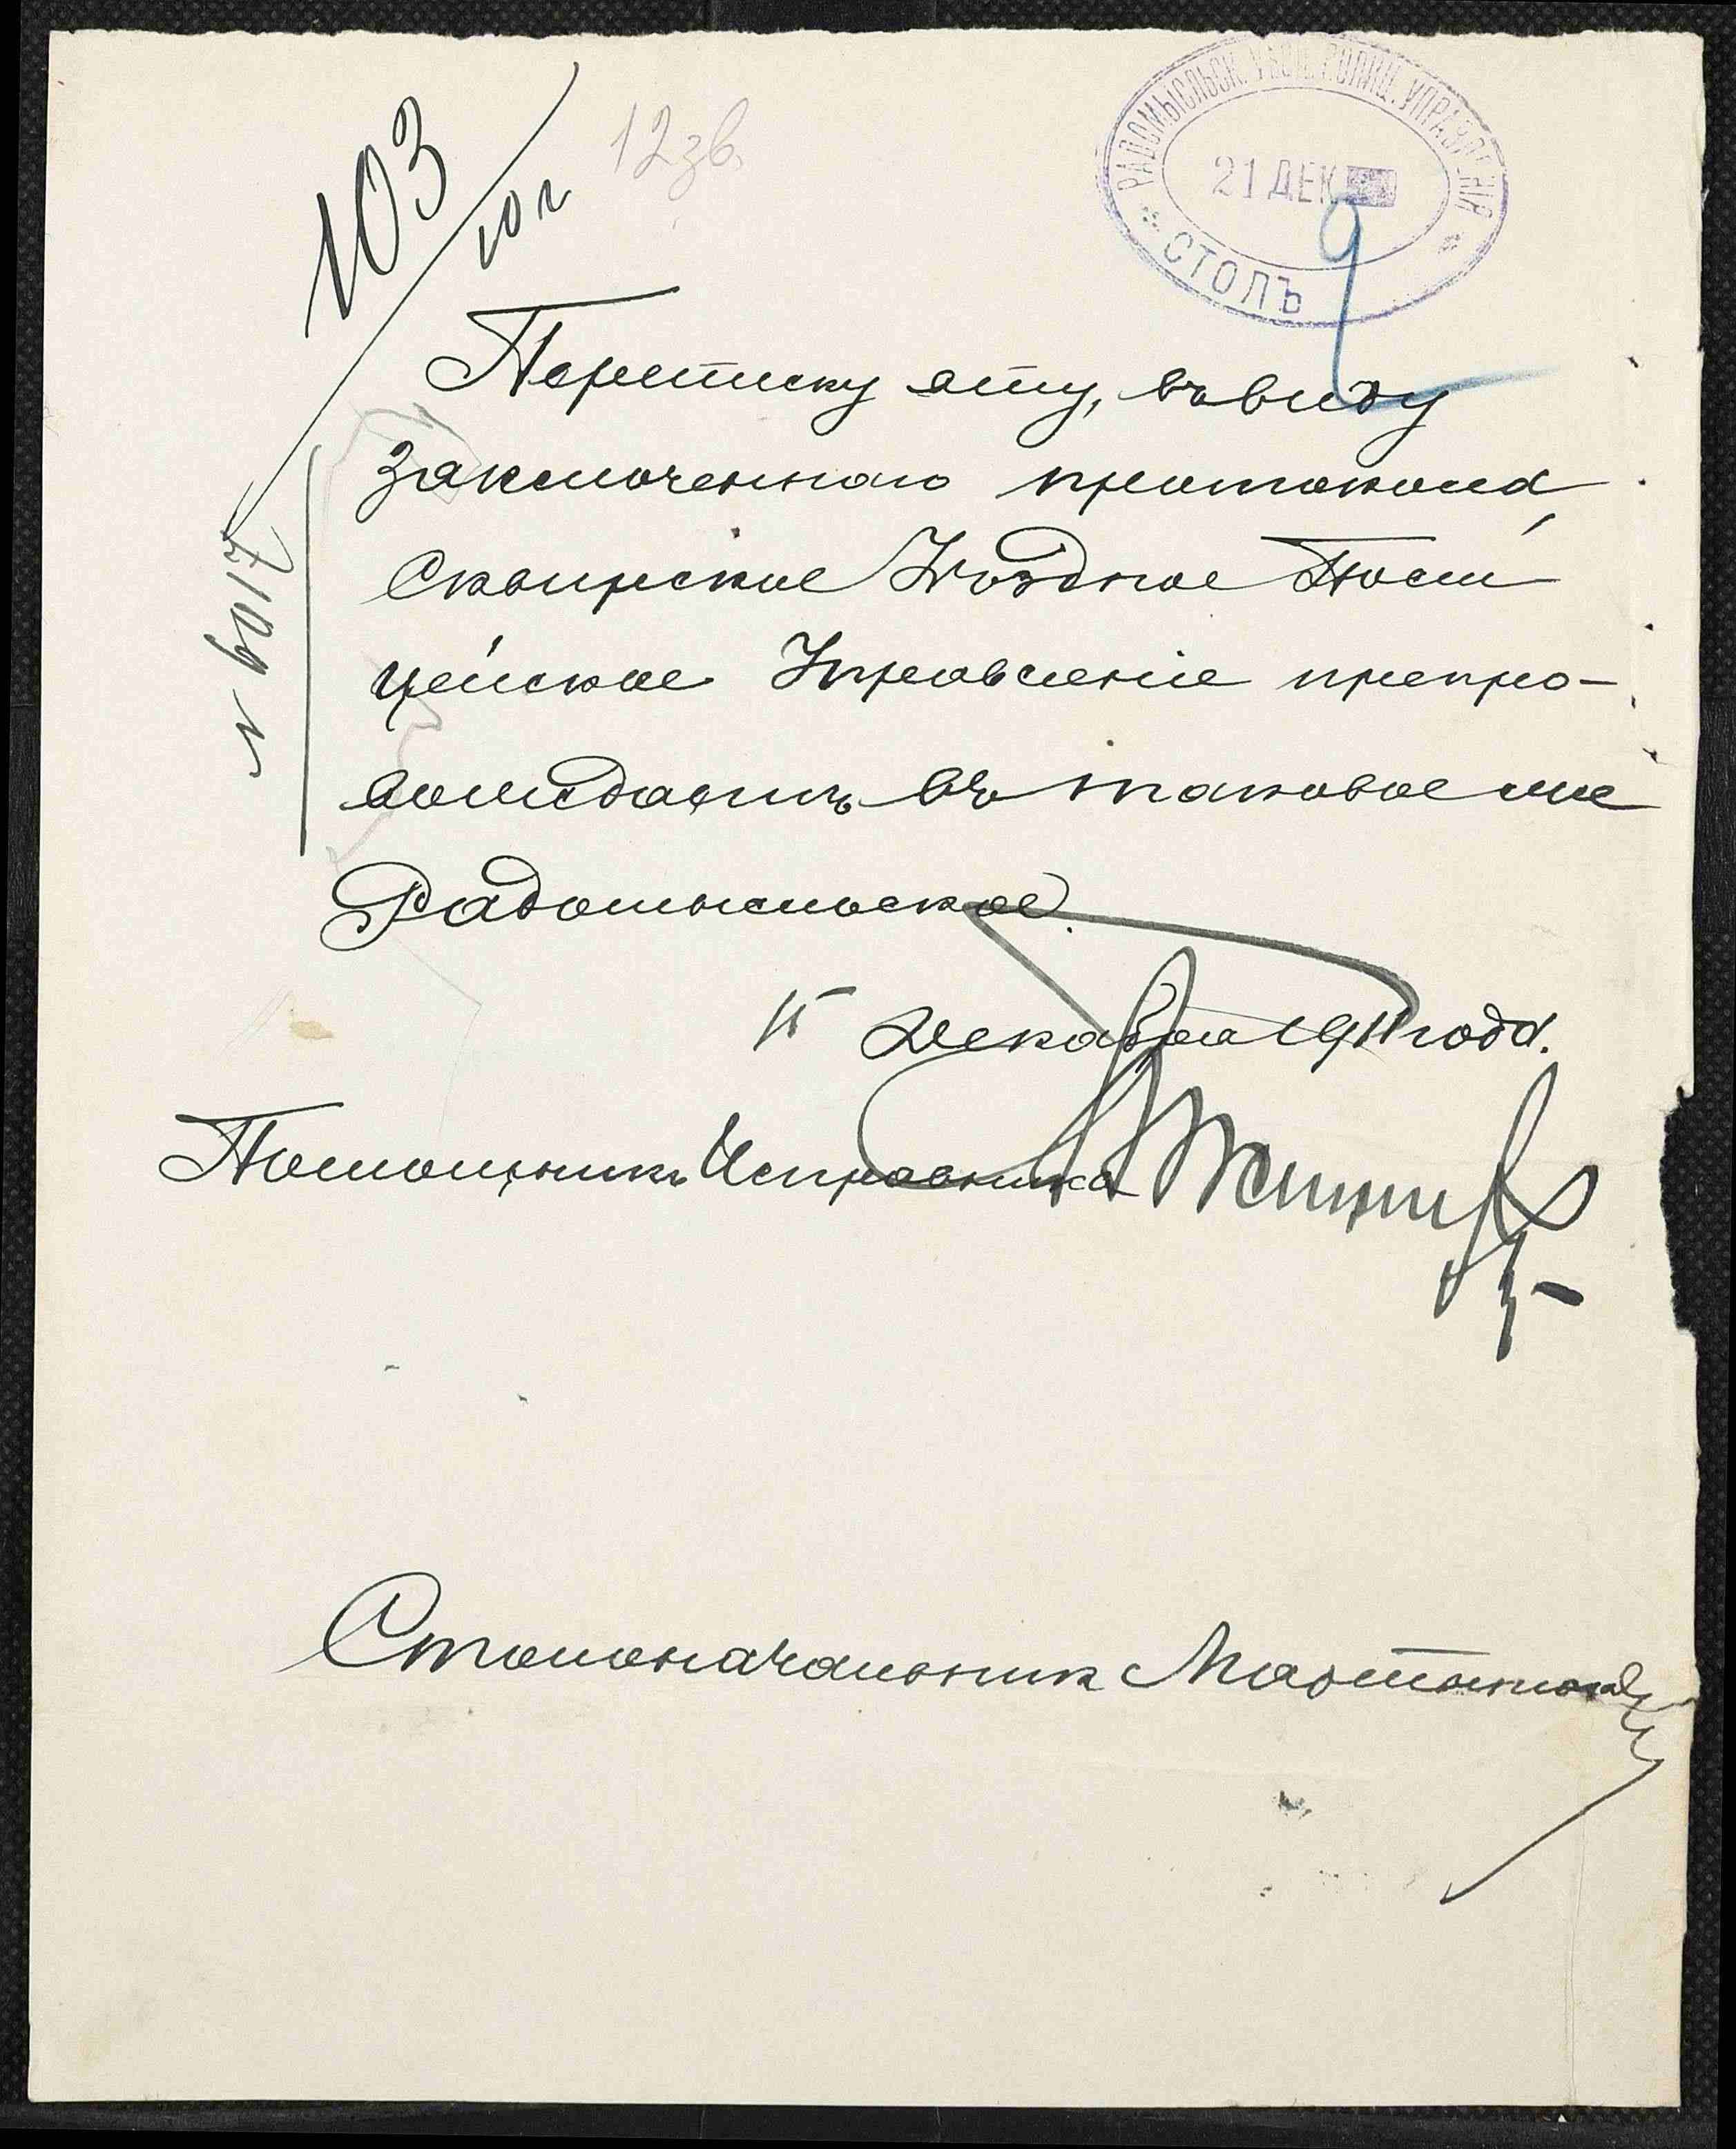 103
10 г
12 зв.
РАДОМЫСЛЬСК. УѢЗД. ПОЛИЦ. УПРАВЛЕНІЯ
21 ДЕК
СТОЛЪ
9
№ 6017
Переписку эту, въ виду
заключеннаго протокола,
Сквирское Уѣздное Поли
цейское Управленіе препро-
вождаетъ въ таковое же
Радомысльское.
15 Декабря 1911 года.
Помощникъ Исправника
Столоначальник